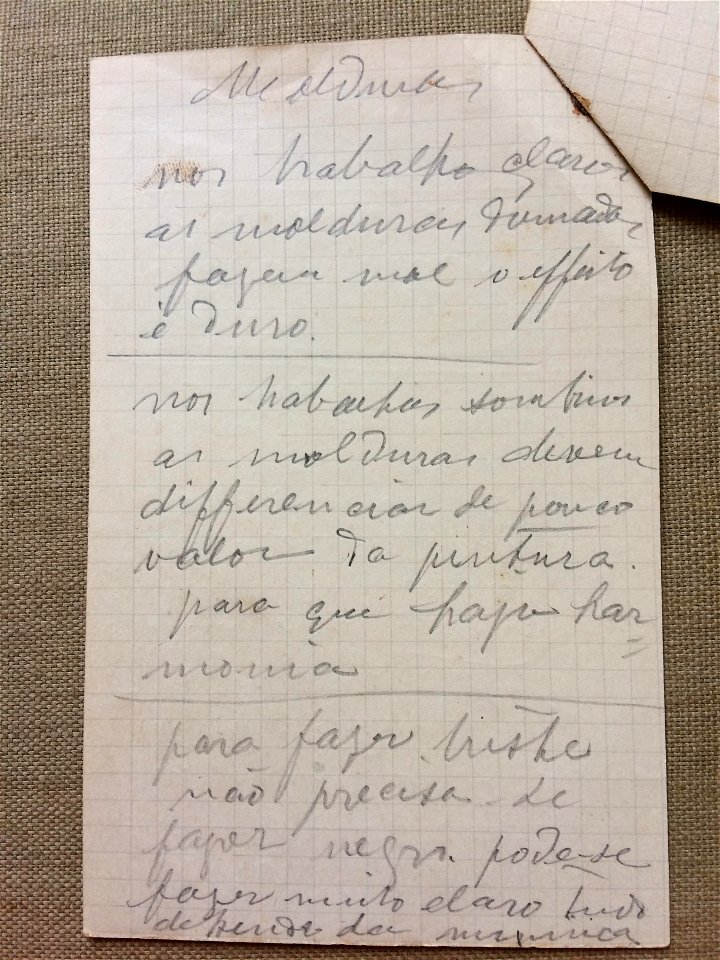 Molduras
nos trabalho claros
as molduras douradas
fazem mal o effeito
é duro.
nos trabalhos sombrios
as molduras devem
differenciar de pouco
valor da pintura.
para que haja har=
monia
para fazer triste
não precisa-se
fazer negro. pode-se
fazer muito claro tudo
depende da mimica